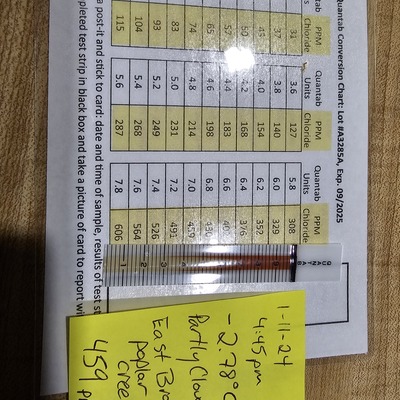 Quantab Conversion Chart: Lot #A3285A, Exp. 09/2025
PPM Quantab PPM Quantab PPM
Chloride Units Chloride Units Chloride
31 3.6 127 5.8 308
37 3.8 140 6.0 329
4.0 154 6.2 352
50 4.2 168 6.4 376
57 4.4 183 6.6
65 4.6 198 6.8 430
74 4.8 214 7.0 459
83 5.0 231 7.2 491
93 5.2 249 7.4 526
104 5.4 268 7.6 564
115 5.6 287 7.8 606
a post-it and stick to card: date and time of sample, results of test
test strip in black box and take a picture of card to report
QUANTAB
1 2 3
1-11-24
4:45pm
-2.78°C
Partly
East
poplar
459